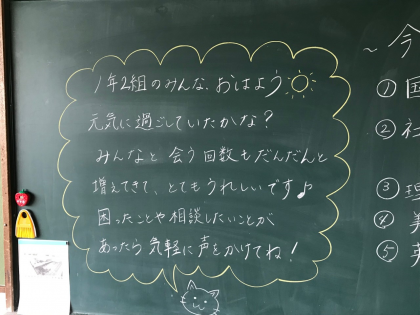 1年2組のみんな、おはよう
元気に過ごしていたかな？
みんなと会う回数もだんだんと
増えてきて、とてもうれしいです♪
困ったことや相談したいことが
あったら気軽に声をかけてね！
～今
①国
②社
③理
④美
⑤英